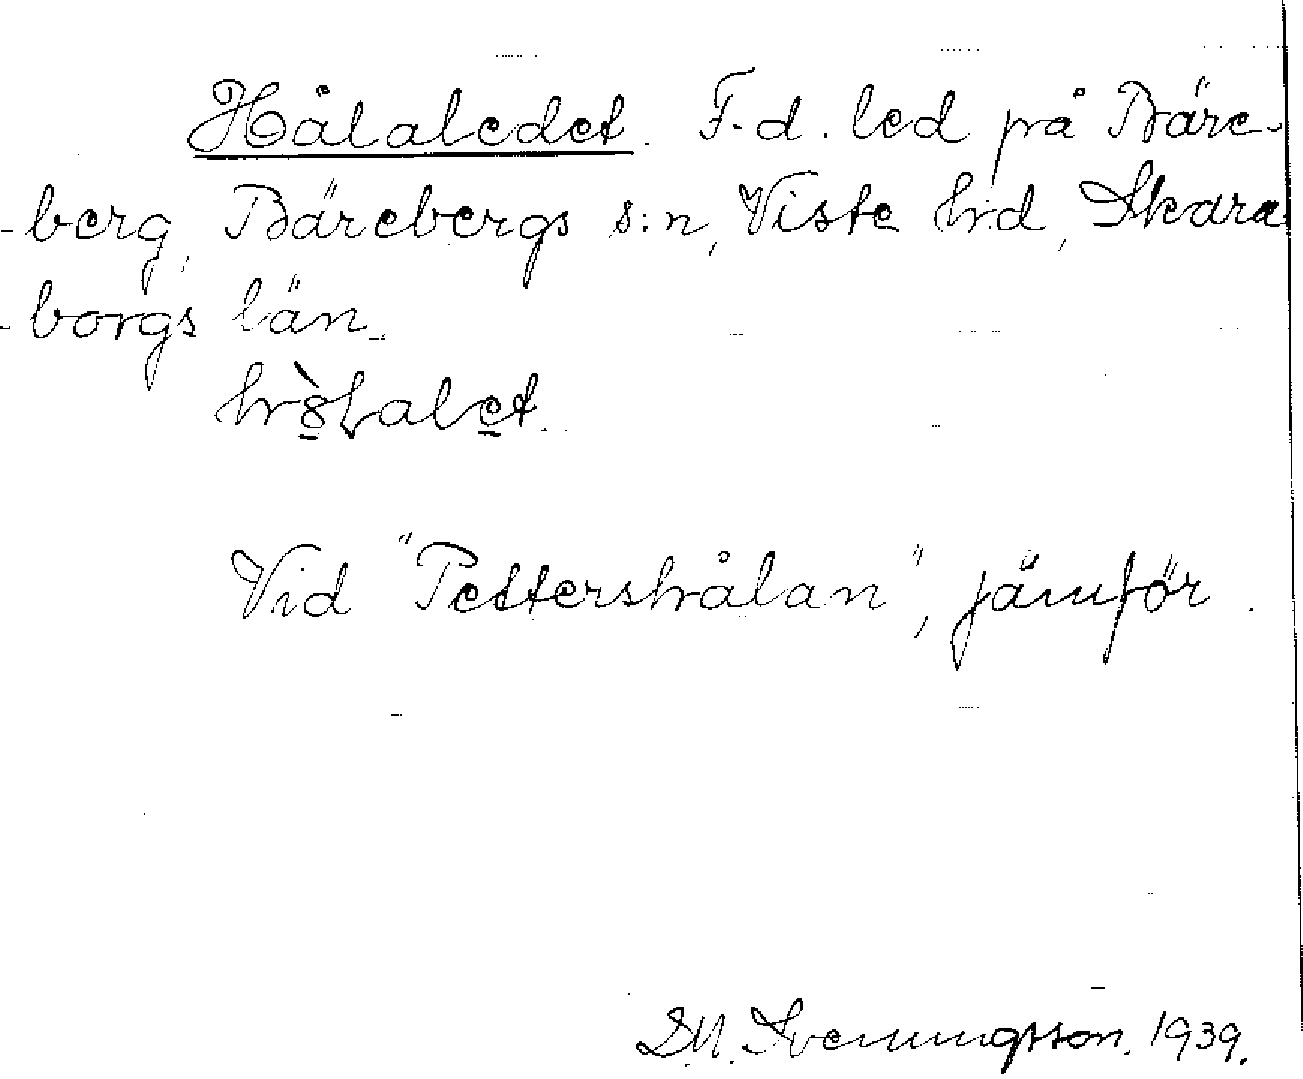 Hålaledet. F.d. led på Bäre-
-berg, Bärebergs s:n, Viste hd, Skara-
-borgs län.
Vid "Pettershålan", jämför.
D.M. Svenningsson. 1939.